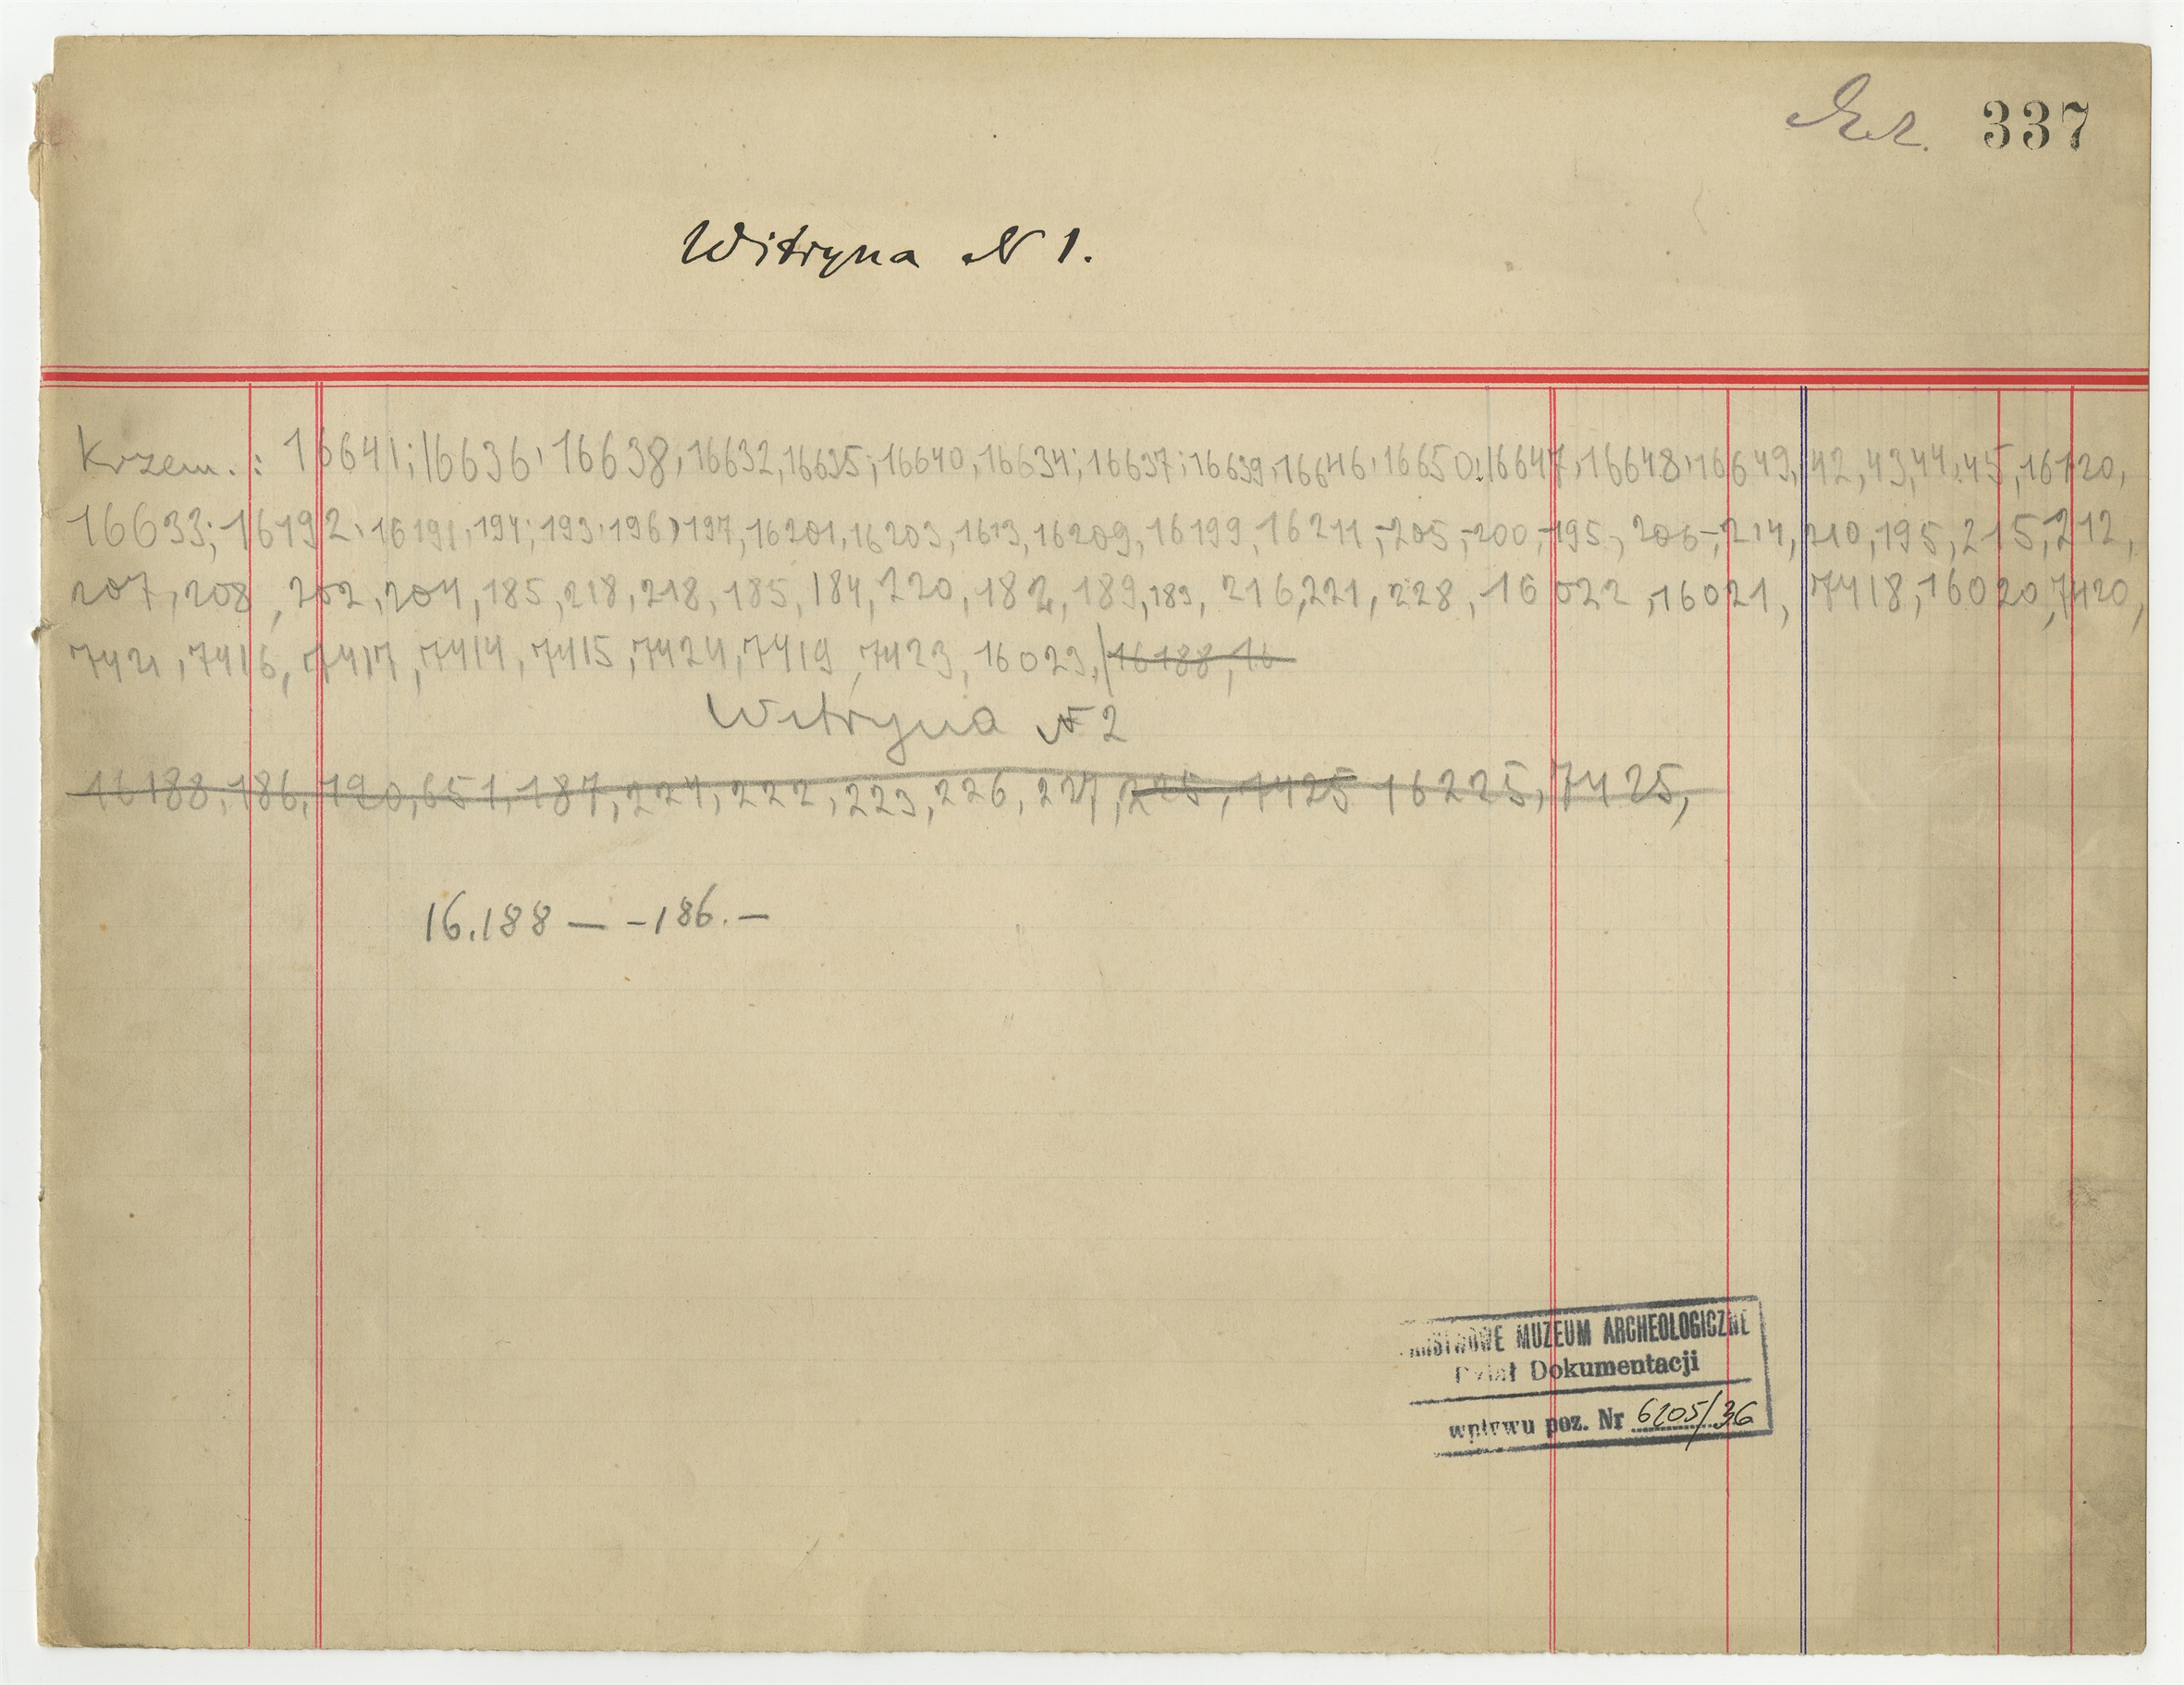 337
Witryna N 1.
Krzem.: 16641; 16636, 16638, 16632, 16635; 16640, 16634; 16637; 16639, 16646, 16650, 16647, 16648, 16649, 42, 43, 44, 45, 16120,
16633; 16192, 16191, 194; 193, 196, 197, 16201, 16203, 1613, 16209, 16199, 16211, -205, -200, -195, 206-, 214, 210, 195, 215, 212,
207, 208, 202, 204, 185, 218, 218, 185, 184, 220, 182, 189, 183, 216, 221, 228, 16022, 16021, 7418, 16020, 7420,
7421, 7416, 7417, 7414, 7415, 7424, 7419, 7423, 16023, 16188, 16
Witryna N 2
16188, 186, 190, 651, 187, 224, 222, 223, 226, 227, 225, 7425 16225, 7425,
16.188 — -186. —
PAŃSTWOWE MUZEUM ARCHEOLOGICZNE
Dział Dokumentacji
wpływu poz. Nr 6205/36